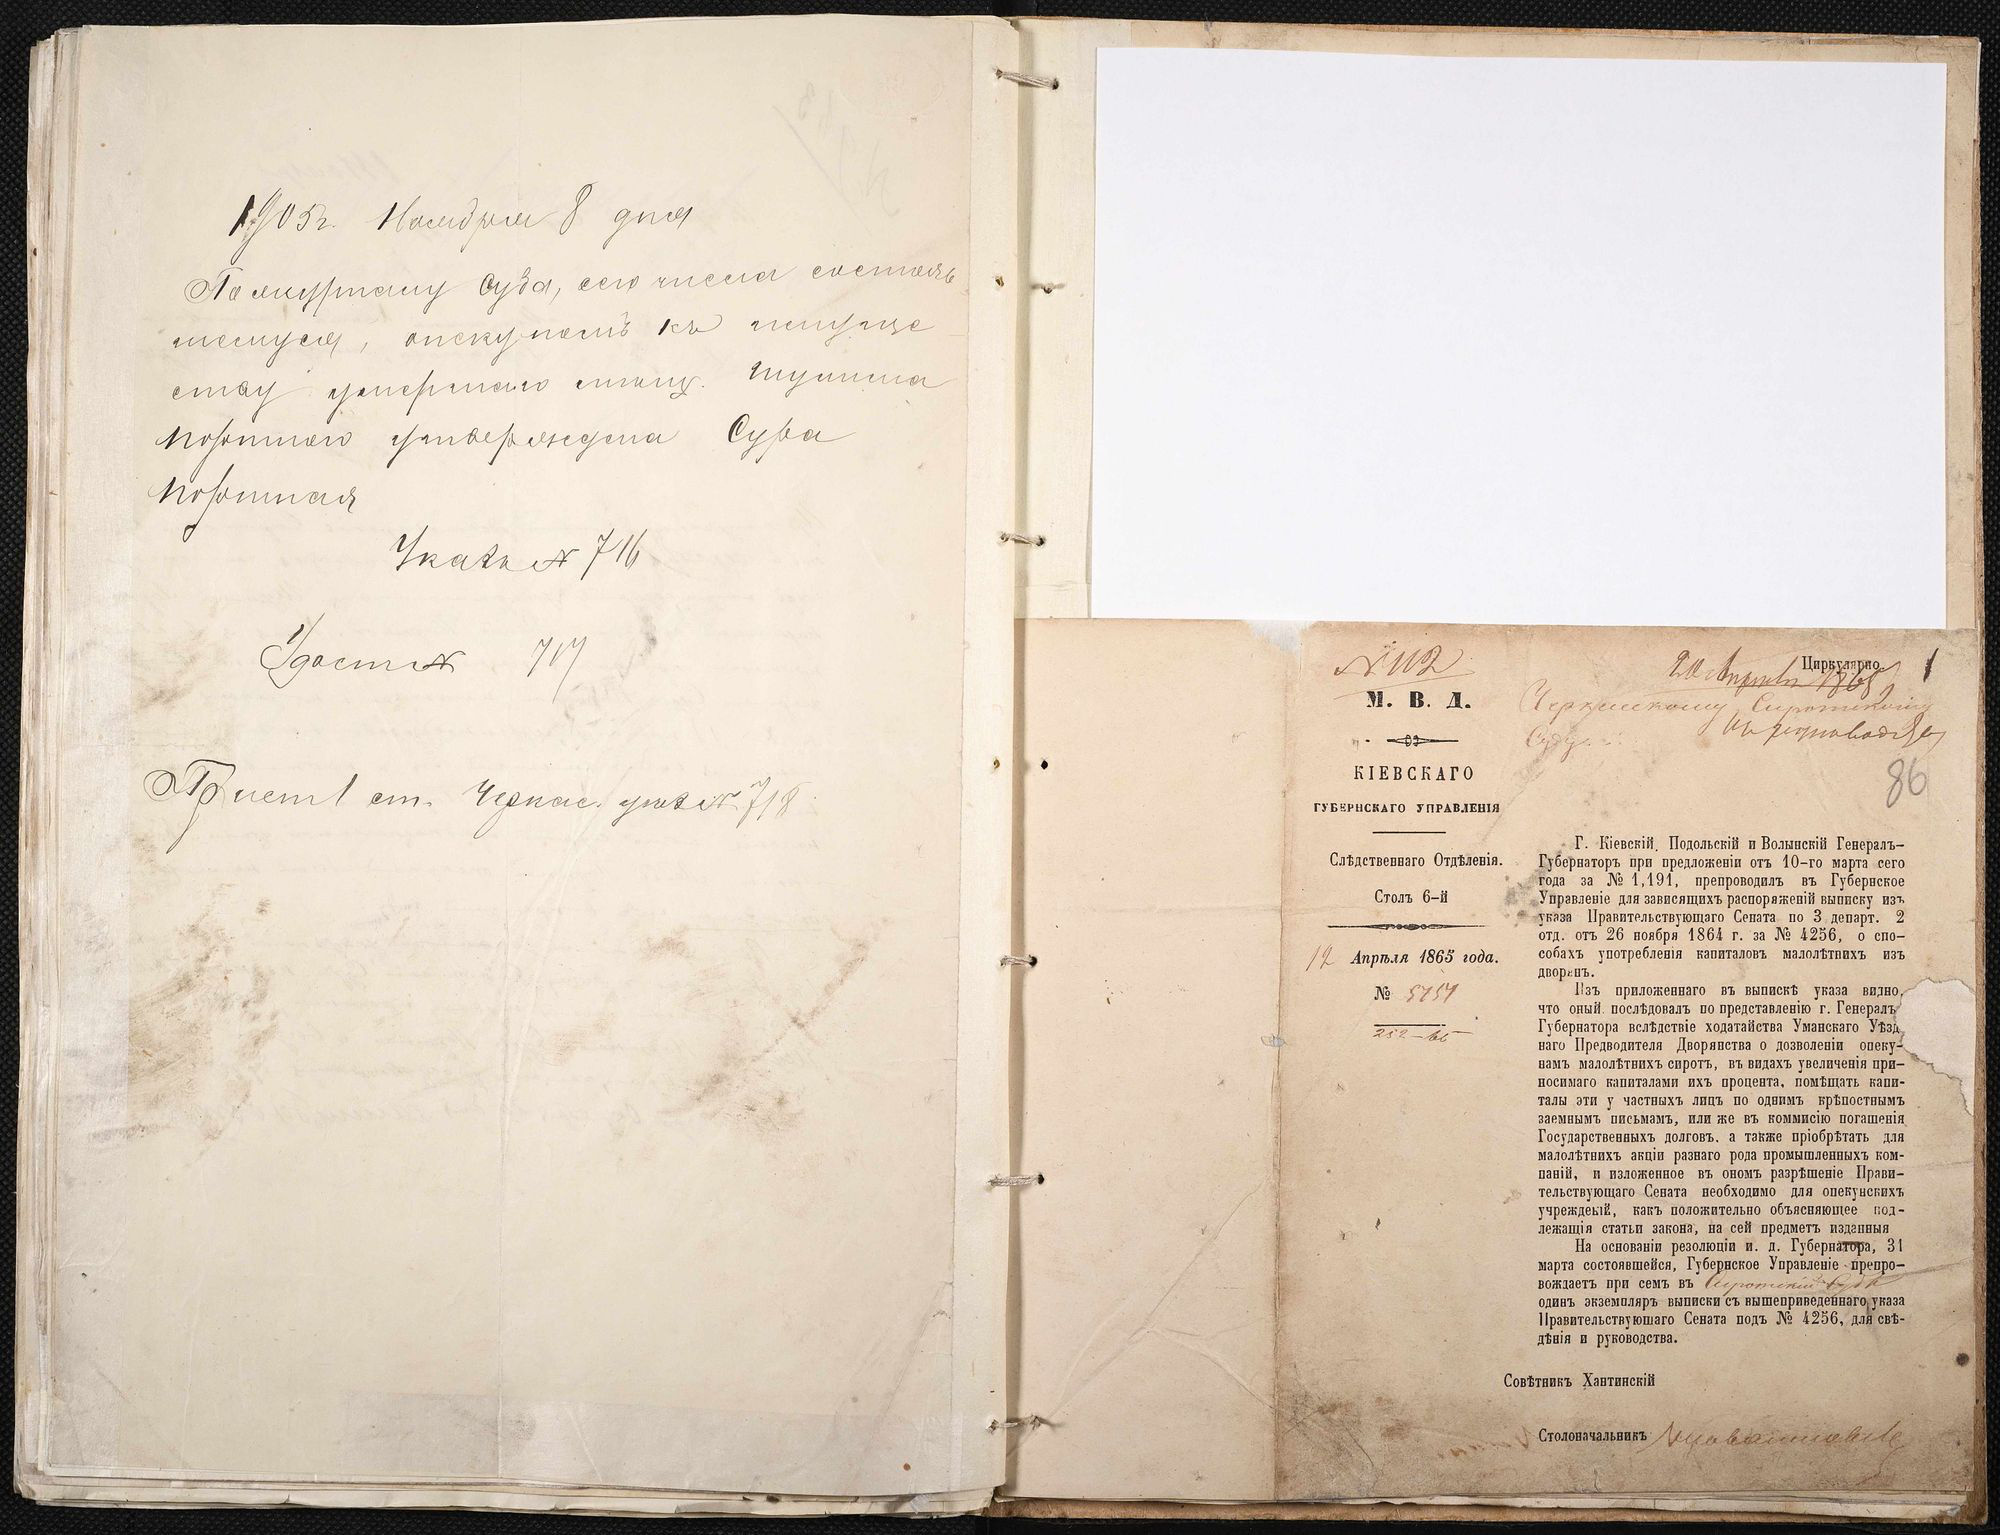 1905 г. Ноября 8 дня
По журналу Суда, сего числа состояв-
шемуся, опекуномъ къ имуще-
ству умершаго мѣщ.
утверждена Сура
Указъ № 716
Удост № 717
Прист 1 ст. Черкас. указ № 718
№ 112
М. В. Д.
КІЕВСКАГО
ГУБЕРНСКАГО УПРАВЛЕНІЯ
Слѣдственнаго Отдѣленія.
Столъ 6-й
12 Апрѣля 1865 года.
№ 5757
252-65
Циркулярно.
1
20 Апрѣля 1865
Черкасскому Сиротскому
Суду.
Къ руководству
86
Г. Кіевскій, Подольскій и Волынскій Генералъ-
Губернаторъ при предложеніи отъ 10-го марта сего
года за № 1,191, препроводилъ въ Губернское
Управленіе для зависящихъ распоряженій выписку изъ
указа Правительствующаго Сената по 3 департ. 2
отд. отъ 26 ноября 1864 г. за № 4256, о спо-
собахъ употребленія капиталовъ малолѣтнихъ изъ
дворянъ.
Изъ приложеннаго въ выпискѣ указа видно,
что оный послѣдовалъ по представленію г. Генералъ
Губернатора вслѣдствіе ходатайства Уманскаго Уѣзд
наго Предводителя Дворянства о дозволеніи опеку-
намъ малолѣтнихъ сиротъ, въ видахъ увеличенія при-
носимаго капиталами ихъ процента, помѣщать капи-
талы эти у частныхъ лицъ по однимъ крѣпостнымъ
заемнымъ письмамъ, или же въ коммисію погашенія
Государственныхъ долговъ, а также пріобрѣтать для
малолѣтнихъ акціи разнаго рода промышленныхъ ком-
паній, и изложенное въ ономъ разрѣшеніе Прави-
тельствующаго Сената необходимо для опекунскихъ
учрежденій, какъ положительно объясняющее под-
лежащія статьи закона, на сей предметъ изданныя
На основаніи резолюціи и. д. Губернатора, 31
марта состоявшейся, Губернское Управленіе препро-
вождаетъ при семъ въ Сиротскій Судъ
одинъ экземпляръ выписки съ вышеприведеннаго указа
Правительствующаго Сената подъ № 4256, для свѣ-
дѣнія и руководства.
Совѣтникъ Хантинскій
Столоначальникъ